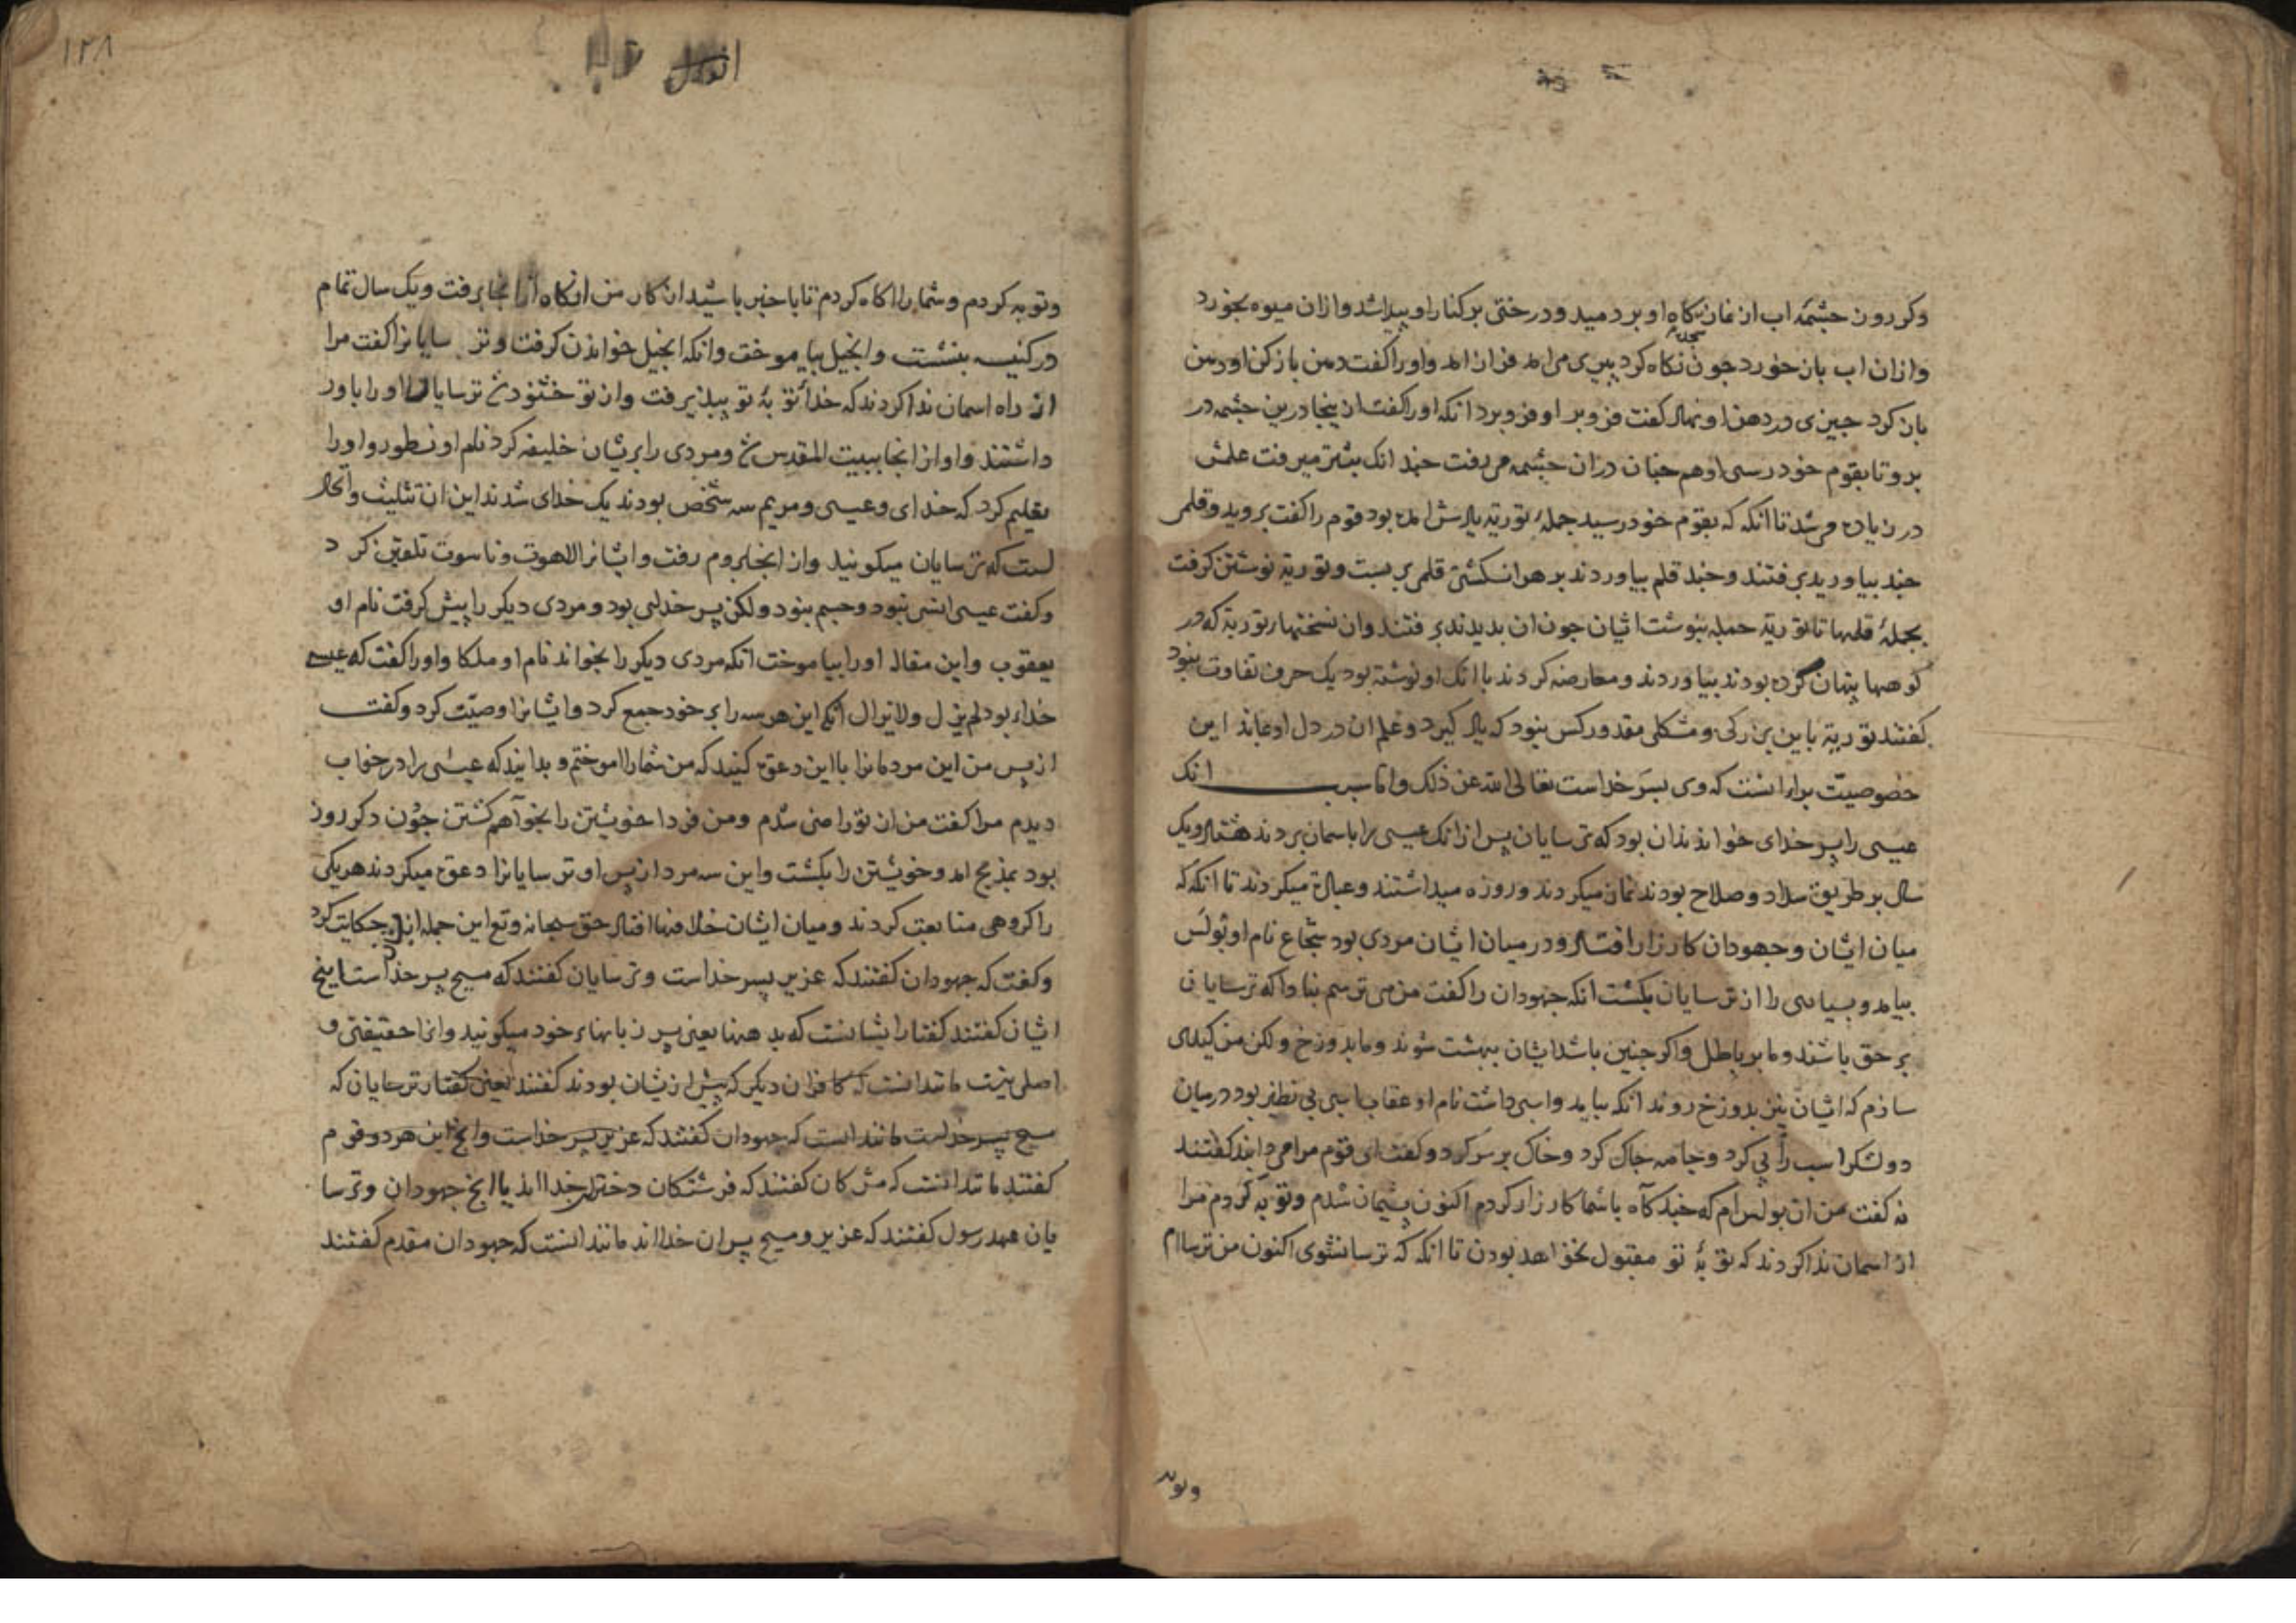 وکر رون چشمه اب از نماز کاه او بر دمید و درختی بر کنار او پیدا شد و ازان میوه بخورد
وازان اب باز خورد جون نکاه کرد پیری مرامد فراز امد و اورا کفت دهن باز کن او دهن
باز کرد جیزی در دهن او نهاد کفت فرو بر او فرو برد انکه اورا کفت از ینجا درین چشمه در
برو تا بقوم خود رسی او هم جنان دران چشمه می رفت جند انک بیشتر میرفت علمش
در زیاده می شد تا انکه که بقوم خود رسید جمله تورته یادش امده بود قوم را کفت بروید و قلمی
جند بیاورید برفتند و جند قلم بیاوردند بر هر انکشتی قلمی بر بست و توریة نوشتن کرفت
بجملهٔ قلمها تا توریة جمله بنوشت ایشان جون ان بدیدند برفتند وان نسختهاء توریة که در
کوهها پنهان کرده بودند بیاوردند و معارضه کردند با انک او نوشته بود یک حرف تفاوت نبود
کفتند توریة باین بزرکی و مشکلی مقدور کس نبود که یاد کیرد و علم ان در دل او نماند این
خصوصیت براء انست که وی پسر خداست تعالی الله عن ذلک و اما سبب انک
عیسی را پسر خدای خواندند ان بود که ترسایان پس از انک عیسی را باسمان بردند هشتاد و یک
سال بر طریق سداد و صلاح بودند نماز میکردند و روزه میداشتند و عبادة میکردند تا انکه که
میان ایشان و جهودان کارزار افتاد و در میان ایشان مردی بود شجاع نام او بولس
بیامد و بسیاری را از ترسایان بکشت انکه جهودان را کفت من می ترسم نبادا که ترسایان
بر حق باشند و ما بر باطل و اکر جنین باشد ایشان ببهشت شوند و ما بدوزخ ولکن من کیدی
سازم که ایشان نیز بدوزخ روند انکه بیامد و اسبی داشت نام او عقاب اسبی بی نظیر بود در میان
دو لشکر اسب را پی کرد و جامه جاک کرد و خاک بر سر کرد و کفت ای قوم مرا می دانید کفتند
نه کفت من ان بولس ام که جند کاه با شما کارزار کردم اکنون پشیمان شدم و توبه کردم مرا
از اسمان ندا کردند که توبهٔ تو مقبول نخواهد بودن تا انکه که ترسا نشوی اکنون من ترسا ام
وتوبه
۱۲۸
وتوبه کردم و شما را اکاه کردم تا با خبر باشید از کار من انکاه از انجا برفت و یک سال تمام
در کنیسه بنشست و انجیل بیاموخت وانکه انجیل خواندن کرفت و ترسایانرا کفت مرا
از راه اسمان ندا کردند که خدا توبهٔ تو بپذیرفت و از تو خشنود شد ترسایان اورا باور
داشتند و او از انجا ببیت المقدس شد و مردی را بریشان خلیفه کرد نام او نسطور و اورا
تعلیم کرد که خدای و عیسی و مریم سه شخص بودند یک خدای شدند این ان تثلیث و اتحاد
است که ترسایان میکویند و از انجا بروم رفت و ایشانرا لاهوت و ناسوت تلقین کرد
وکفت عیسی انسی نبود و جسم نبود ولکن پسر خدای بود و مردی دیکر را پیش کرفت نام او
یعقوب و این مقاله اورا بیاموخت انکه مردی دیکر را بخواند نام او ملکا و اورا کفت که عیسی
خداء بود لم یزل و لا یزال انکه این هر سه را بر خود جمع کرد و ایشانرا وصیت کرد و کفت
از پس من این مردمانرا با این دعوة کنید که من شما را اموختم و بدانید که عیسی را در خواب
دیدم مرا کفت من از تو راضی شدم و من فردا خویشتن را بخواهم کشتن جون دکر روز
بود بمذبح امد و خویشتن را بکشت و این سه مرد از پس او ترسایانرا دعوة میکردند هر یکی
را کروهی متابعت کردند و میان ایشان خلافها افتاد حق سبحانه و تع این جمله حکایت کرد
وکفت که جهودان کفتند که عزیر پسر خداست و ترسایان کفتند که مسیح پسر خداست اینچ
ایشان کفتند کفتار ایشانست که بدهنها یعنی بر زبانهاء خود میکویند وانرا حقیقتی و
اصلی نیست مانند انست که کافران دیکر که پیش ازیشان بودند کفتند یعنی کفتار ترسایان که
مسیح پسر خداست مانند انست که جهودان کفتند که عزیر پسر خداست و انچ این هر دو قوم
کفتند مانند انست که مشرکان کفتند که فرشتکان دختران خدا اند یا انچ جهودان و ترسا
یان عهد رسول کفتند که عزیر و مسیح پسران خدا اند مانند انست که جهودان مقدم کفتند